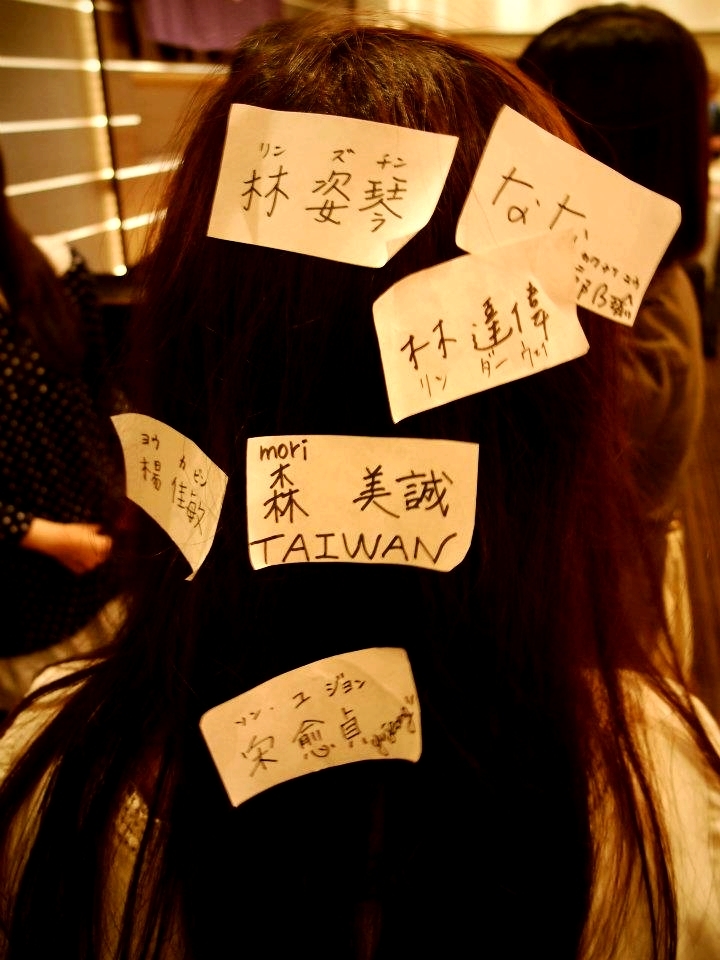 リン ズ チン
林 姿 琴
なな
林 達偉
リン ダー ウェイ
ヨウ カ ビン
楊 佳敏
mori
森 美誠
TAIWAN
ソン・ユ ジョン
宋 愈貞